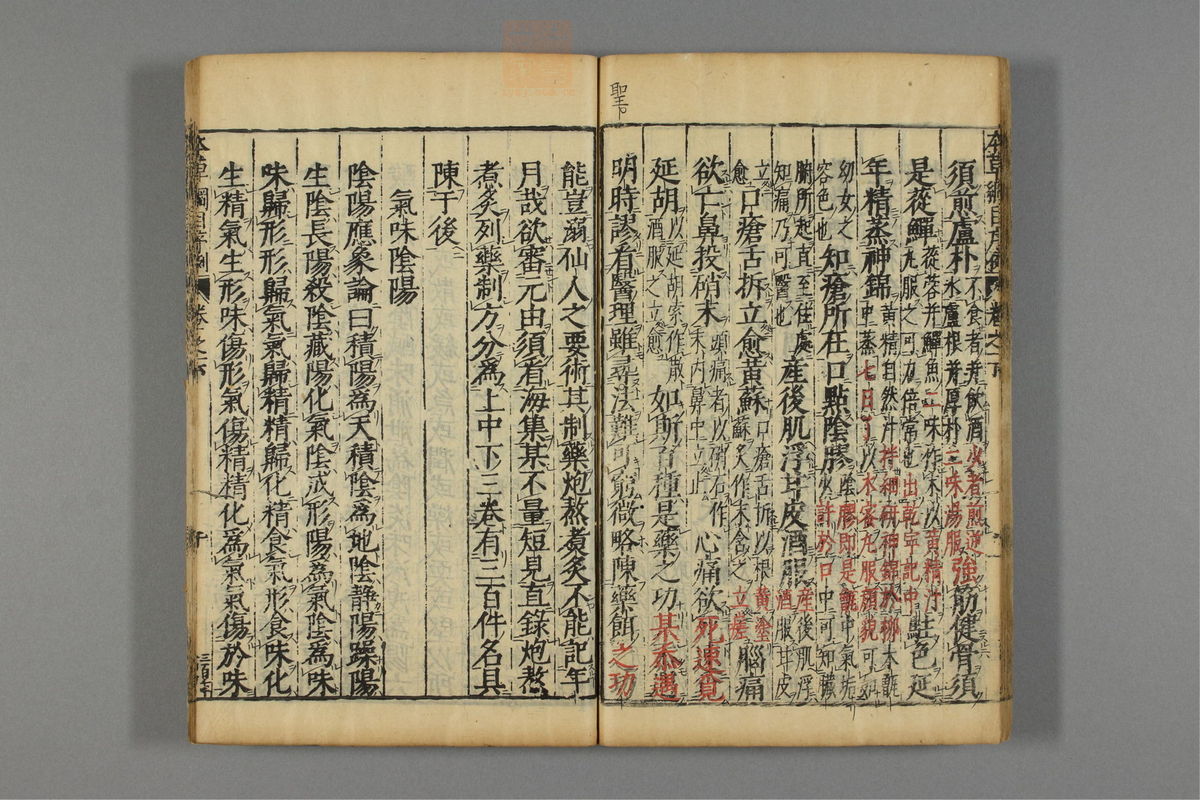 須煎蘆朴不食者并飲酒少者煎逆
水蘆根并厚朴二味湯服強筋健骨須
是蓯鱓蓯蓉并鱓魚二味作末以黄精汁
丸服之可力倍常也出乾寧記中駐色延
年精蒸神錦黄精自然汁拌細研神錦於柳木甑
中蒸七日了以木蜜丸服顔貌可如
幼女之
容色也知瘡所在口點陰膠陰膠即是甑中氣垢
少許於口中可知臟
腑所起直至住處
知痛乃可醫也産後肌浮甘皮酒服産後肌浮
酒服甘皮
立
愈口瘡舌拆立愈黄蘇口瘡舌拆以根黄塗
蘇炙作末含之立差腦痛
欲亡鼻投硝末頭痛者以硝石作
末内鼻中立止心痛欲死速覓
延胡以延胡索作散
酒服之立愈如斯百種是藥之功某忝遇
明時謬看醫理雖尋法難可窮微略陳藥餌之功
能豈溺仙人之要術其制藥炮熬煮炙不能記年
月哉欲審元由須看海集某不量短見直錄炮熬
煮炙列藥制方分爲上中下三卷有三百件名具
陳于後
氣味陰陽
陰陽應象論曰積陽爲天積陰爲地陰静陽躁陽
生陰長陽殺陰藏陽化氣陰成形陽爲氣陰爲味
味歸形形歸氣氣歸精精歸化精食氣形食味化
生精氣生形味傷形氣傷精精化爲氣氣傷於味